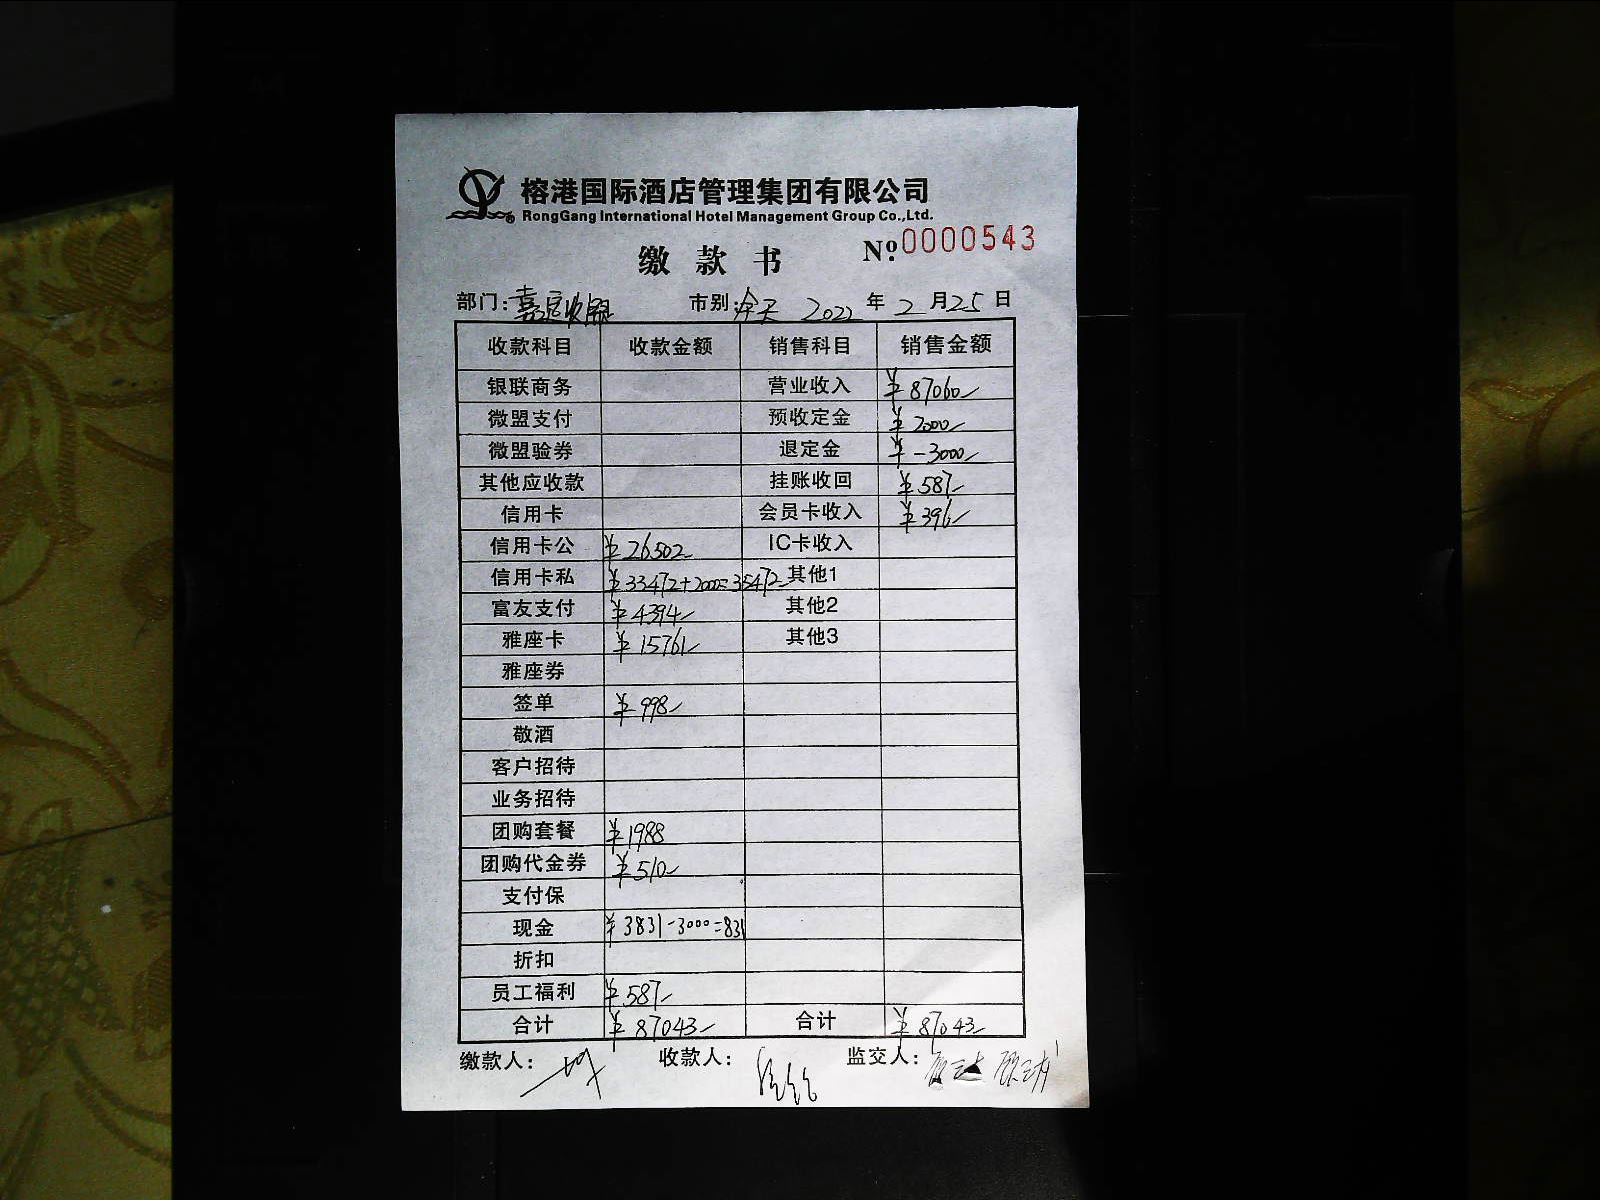 榕港国际酒店管理集团有限公司
RongGang International Hotel Management Group Co.,Ltd.
缴款书 Nº: 0000543
部门: 市别: 全天 2022 年 2 月 25 日
收款科目 收款金额 销售科目 销售金额
银联商务 营业收入 ¥87060
微盟支付 预收定金 ¥2000
微盟验券 退定金 ¥-3000
其他应收款 挂账收回 ¥587
信用卡 会员卡收入 ¥396
信用卡公 ¥26502 IC卡收入
信用卡私 ¥33472+2000=35472 其他1
富友支付 ¥4394 其他2
雅座卡 ¥15761 其他3
雅座券
签单 ¥998
敬酒
客户招待
业务招待
团购套餐 ¥1988
团购代金券 ¥510
支付保
现金 ¥3831-3000=831
折扣
员工福利 ¥587
合计 ¥87043 合计 ¥87043
缴款人: 收款人: 监交人: